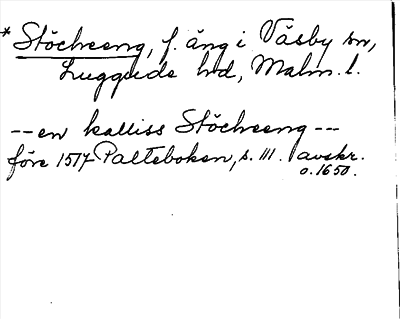 * Stöchreeng, f. äng i Väsby sn,
Luggude hd, Malm. l.
-- en kalliss Stöchreeng ---
före 1517 Palteboken, s. 111. avskr.
o. 1650.